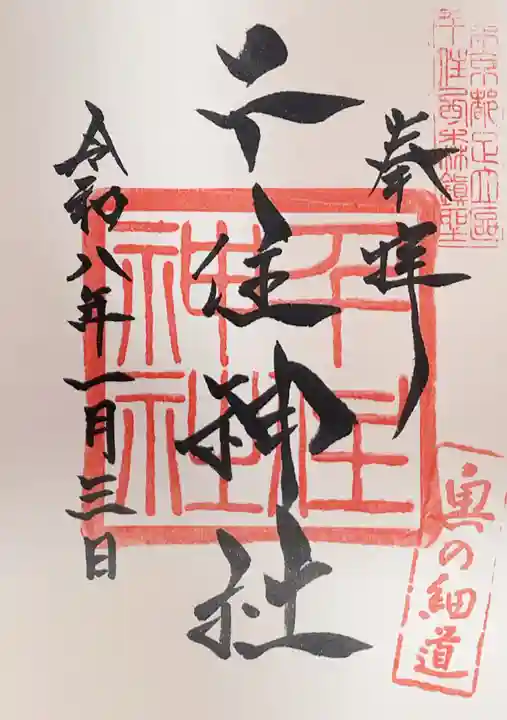 東京都足立区
千住西森鎮聖
奉拝
奥の細道
千住神社
千住
神社
令和八年一月三日